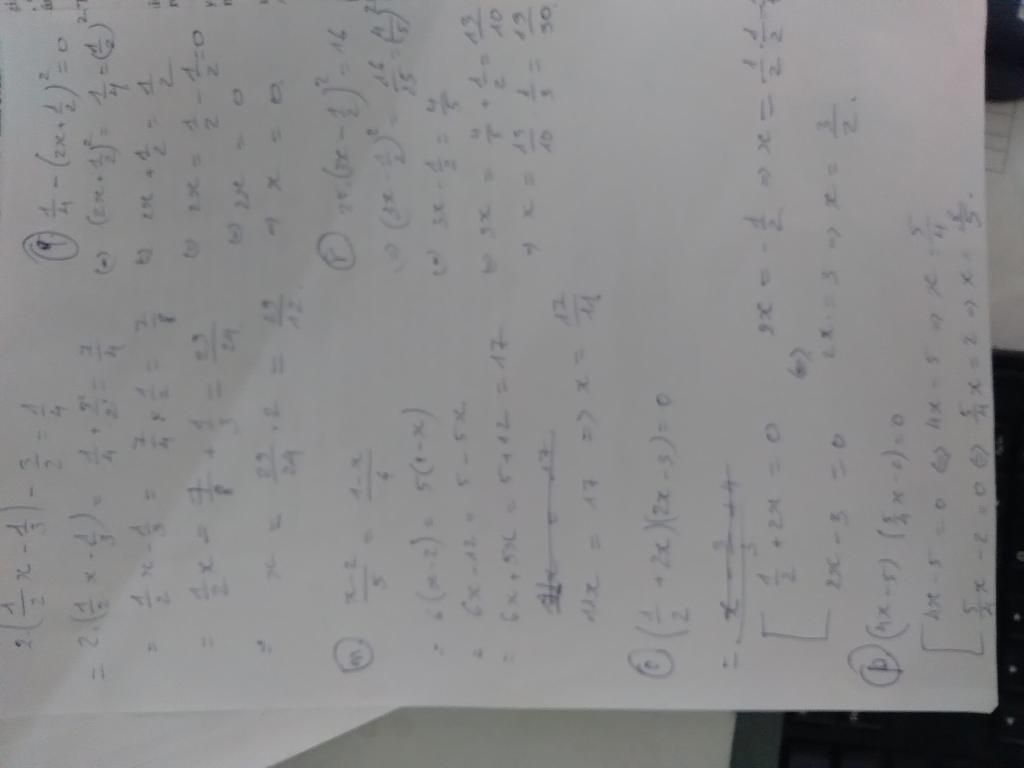 2(1/2 x - 1/3) - 3/2 = 1/4
= 2.(1/2 x - 1/3) = 1/4 + 3/2 = 7/4
= 1/2 x - 1/3 = 7/4 : 1/2 = 7/8
= 1/2 x = 7/8 + 1/3 = 29/24
= x = 29/24 . 2 = 29/12.
(m) x-2/5 = 1-x/6
= 6(x-2) = 5(1-x)
= 6x - 12 = 5 - 5x
= 6x + 5x = 5 + 12 = 17
11x = 17 => x = 17/11
(1/2 + 2x)(2x - 3) = 0
[ 1/2 + 2x = 0
2x - 3 = 0
(=) 2x = - 1/2 => x = - 1/2 . 1/2
2x = 3 => x = 3/2.
(p) (4x-5) (5/4 x - 2) = 0
[ 4x - 5 = 0 (=) 4x = 5 => x = 5/4
5/4 x - 2 = 0 (=) 5/4 x = 2 => x = 8/5.
(q) 1/4 - (2x + 1/2)² = 0
(=) (2x + 1/2)² = 1/4 = (1/2)
(=) 2x + 1/2 = 1/2
(=) 2x = 1/2 - 1/2 = 0
(=) 2x = 0
=> x = 0
(r) (3x - 1/2)² = 16
(=) (3x - 1/2)² = 16/25 = (4/5)
(=) 3x - 1/2 = 4/5
(=) 3x = 4/5 + 1/2 = 13/10
=> x = 13/10 . 1/3 = 13/30.